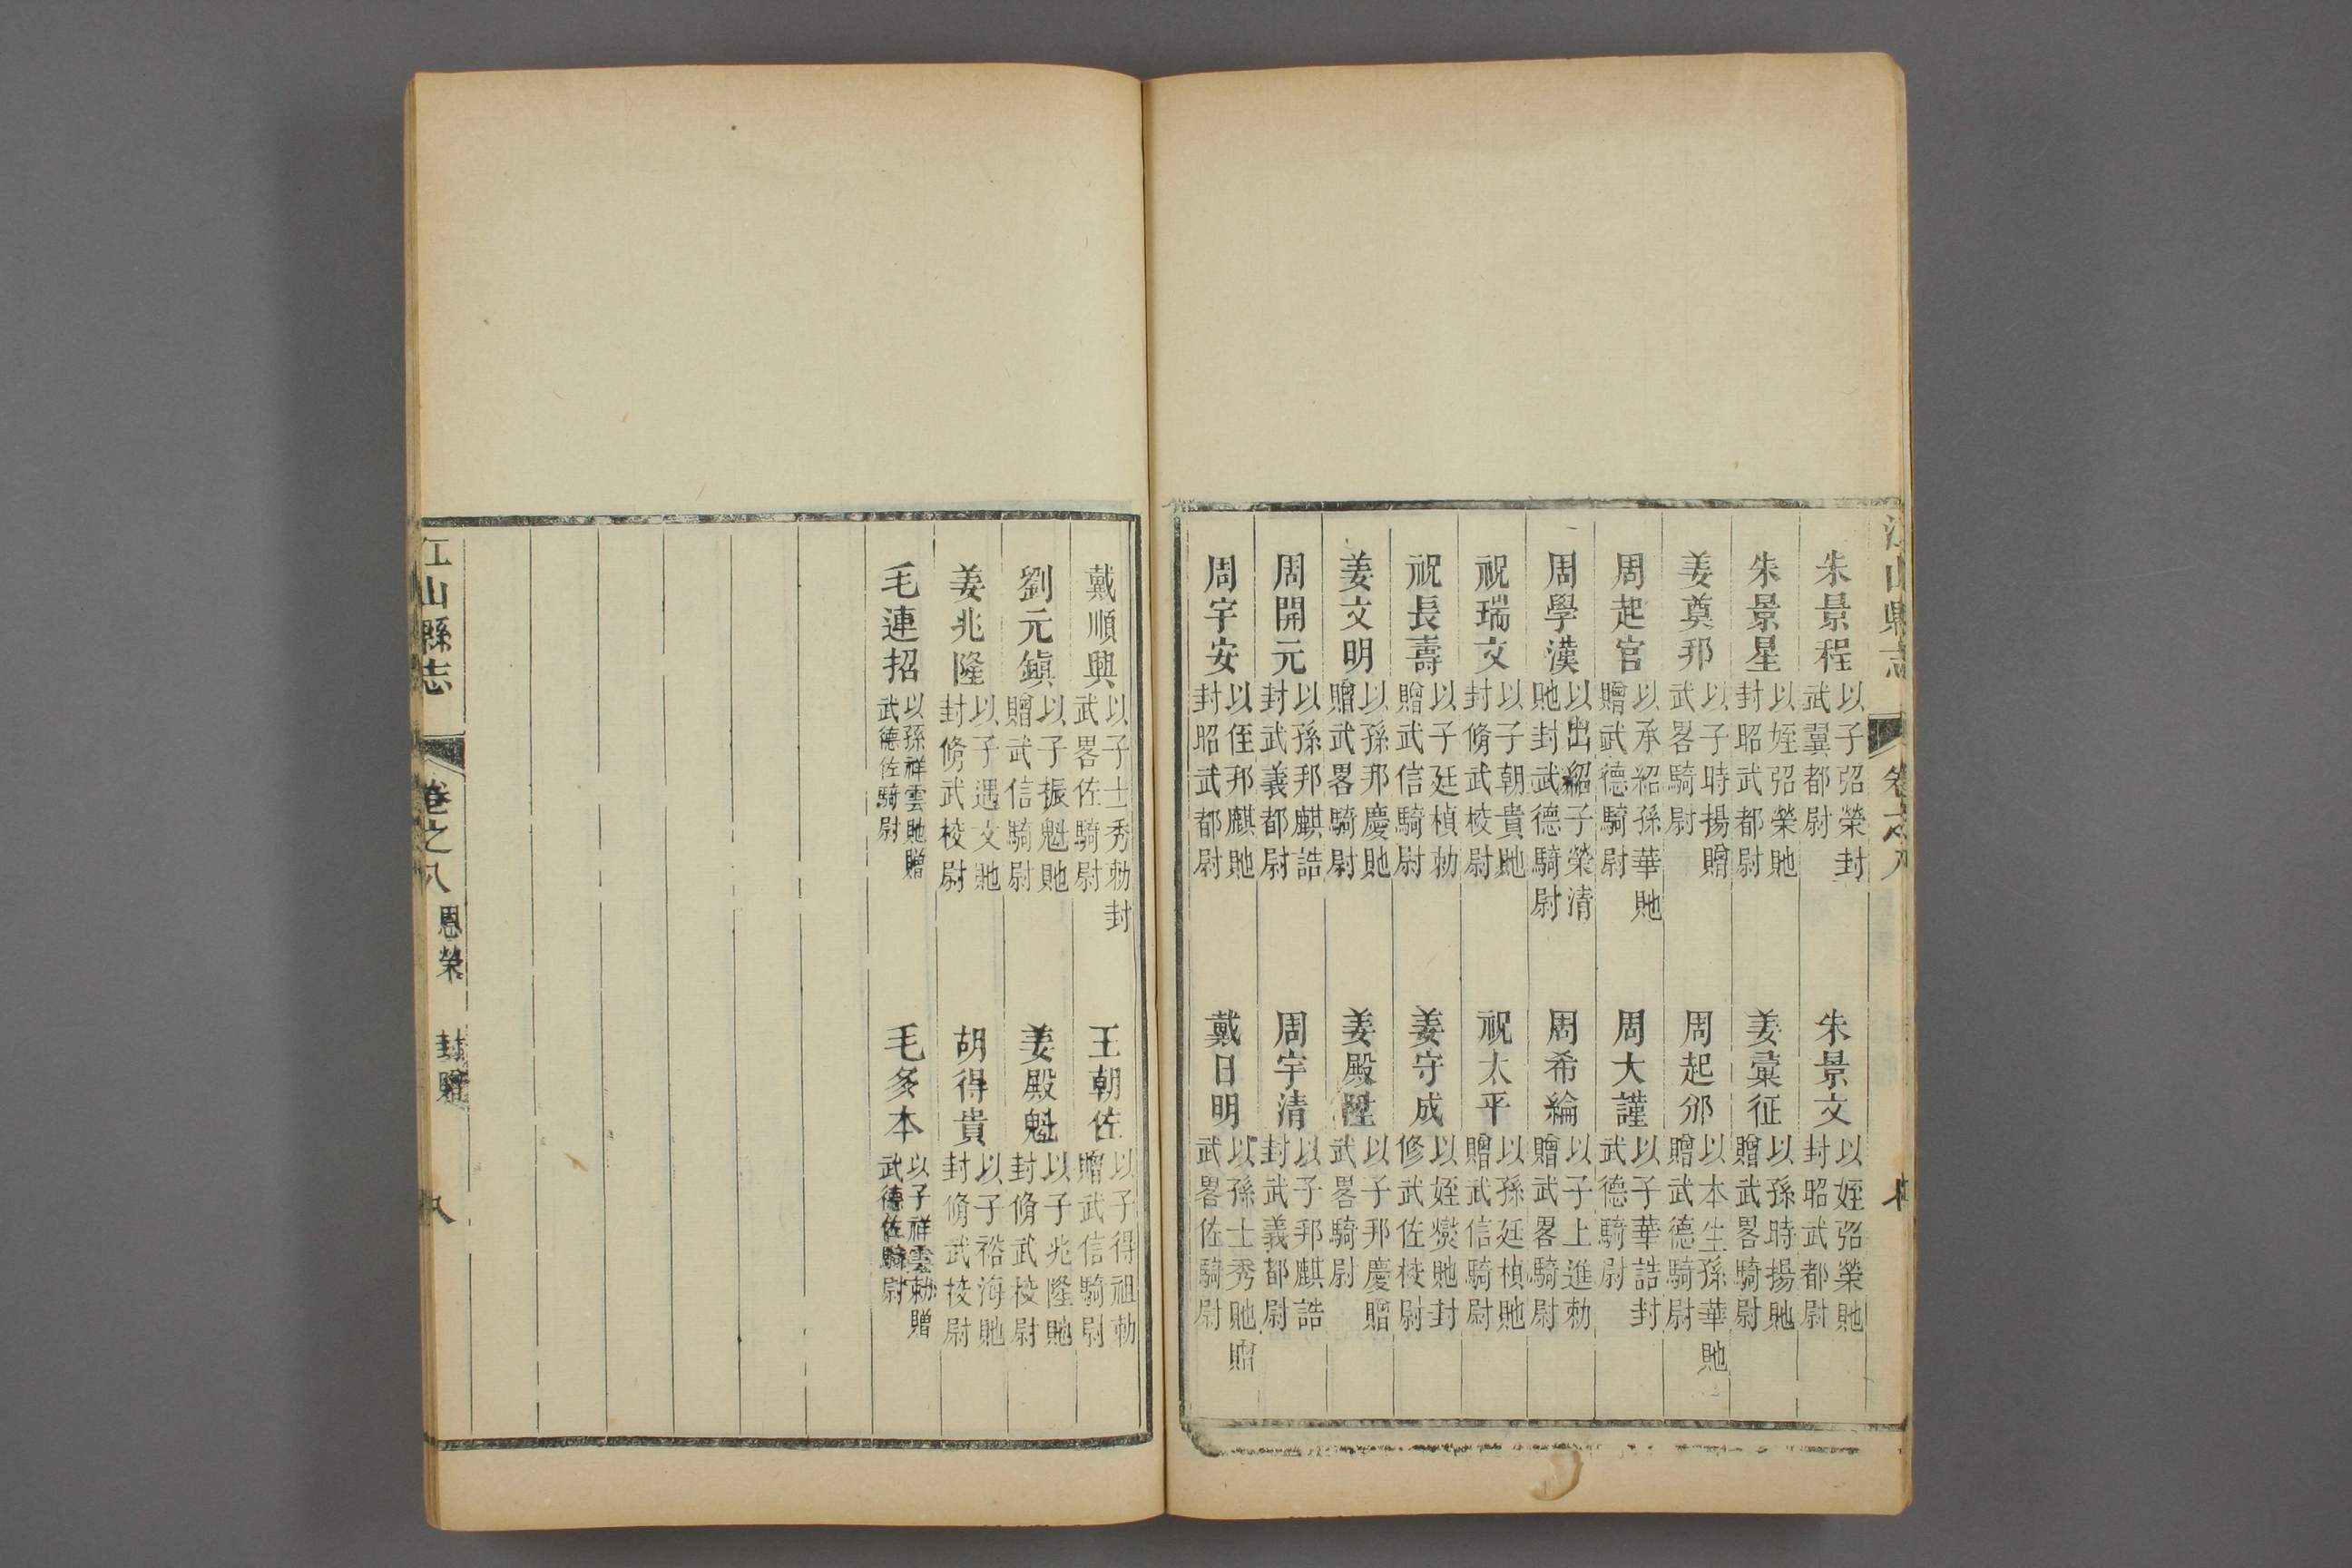 朱景程 以子弨榮封武翼都尉
朱景文 以姪弨榮貤封昭武都尉
朱景星 以姪弨榮貤封昭武都尉
姜彙征 以孫時揚貤贈武畧騎尉
姜奠邦 以子時揚贈武畧騎尉
周起邠 以本生孫華貤贈武德騎尉
周起官 以承紹孫華貤贈武德騎尉
周大謹 以子華誥封武德騎尉
周學漢 以出紹子榮清貤封武德騎尉
周希綸 以子上進勅贈武畧騎尉
祝瑞文 以子朝貴貤封脩武校尉
祝太平 以孫廷楨貤贈武信騎尉
祝長壽 以子廷楨勅贈武信騎尉
姜守成 以姪爕貤封修武佐校尉
姜文明 以孫邦慶貤贈武畧騎尉
姜殿 以子邦慶贈武畧騎尉
周開元 以孫邦麒誥封武義都尉
周宇清 以子邦麒誥封武義都尉
周宇安 以侄邦麒貤封昭武都尉
戴日明 以孫士秀貤贈武畧佐騎尉
戴順興 以子士秀勅封武畧佐騎尉
王朝佐 以子得祖勅贈武信騎尉
劉元鎮 以子振魁貤贈武信騎尉
姜殿魁 以子兆隆貤封脩武校尉
姜兆隆 以子遇文貤封脩武校尉
胡得貴 以子裕海貤封脩武校尉
毛連招 以孫祥雲貤贈武德佐騎尉
毛多本 以子祥雲勅贈武德佐騎尉
江山縣志 卷之八 恩榮 封贈 八